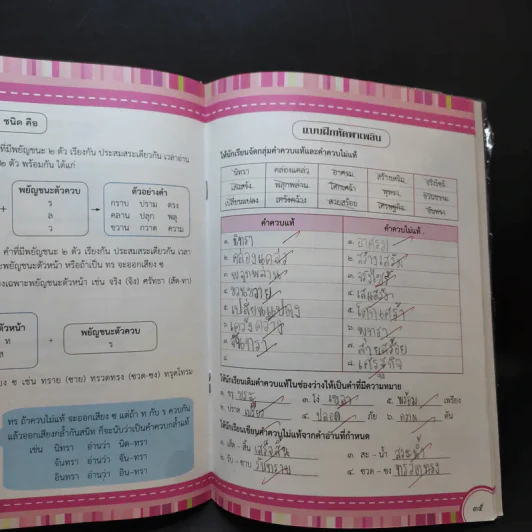 ชนิด คือ
ที่มีพยัญชนะ ๒ ตัว เรียงกัน ประสมสระเดียวกัน เวลาอ่าน
๒ ตัว พร้อมกัน ได้แก่
พยัญชนะตัวควบ
ร
ล
ว
ตัวอย่างคำ
กราบ ปราม ตรง
คลาน ปลุก พลุ
ขวาน กวาด ความ
คำที่มีพยัญชนะ ๒ ตัว เรียงกัน ประสมสระเดียวกัน เวลา
พยัญชนะตัวหน้า หรือถ้าเป็น ทร จะออกเสียง ซ
เฉพาะพยัญชนะตัวหน้า เช่น จริง (จิง) ศรัทธา (สัด-ทา)
ตัวหน้า
ท
ส
+
พยัญชนะตัวควบ
ร
ง ซ เช่น ทราย (ซาย) ทรวดทรง (ซวด-ซง) ทรุดโทรม
ทร ถ้าควบไม่แท้ จะออกเสียง ซ แต่ถ้า ท กับ ร ควบกัน
แล้วออกเสียงกล้ำกันสนิท ก็จะนับว่าเป็นคำควบกล้ำแท้
เช่น นิทรา อ่านว่า นิด-ทรา
จันทรา อ่านว่า จัน-ทรา
อินทรา อ่านว่า อิน-ทรา
แบบฝึกหัดพาเพลิน
ให้นักเรียนจัดกลุ่มคำควบแท้และคำควบไม่แท้
นิทรา คล่องแคล่ว อาศรม สร้างเสริม จริงใจ
เสแสร้ง พลุกพล่าน โศกเศร้า พุทรา
เปลี่ยนแปลง เคว้งคว้าง สวยสร้อย เศรษฐกิจ จันทรา
คำควบแท้ คำควบไม่แท้
๑. นิทรา ๑. อาศรม
๒. คล่องแคล่ว ๒. สร้างเสริม
๓. พลุกพล่าน ๓. จริงใจ
๔. ขวนขวาย ๔. เสแสร้ง
๕. เปลี่ยนแปลง ๕. โศกเศร้า
๖. เคว้งคว้าง ๖. พุทรา
๗. จันทรา ๗.
๘. ๘. เศรษฐกิจ
ให้นักเรียนเติมคำควบแท้ในช่องว่างให้เป็นคำที่มีความหมาย
๓. โง่ เขลา ๕. พร้อม เพรียง
๒. ปราด เปรียว ๔. ปลอด ภัย ๖.
ให้นักเรียนเขียนคำควบไม่แท้จากคำอ่านที่กำหนด
๑. เส็ด - สิ้น เสร็จสิ้น ๓. สะ - น้ำ สระน้ำ
๒. รับ - ซาบ รับทราบ ๔. ซวด - ซง ทรวดทรง
๓๕